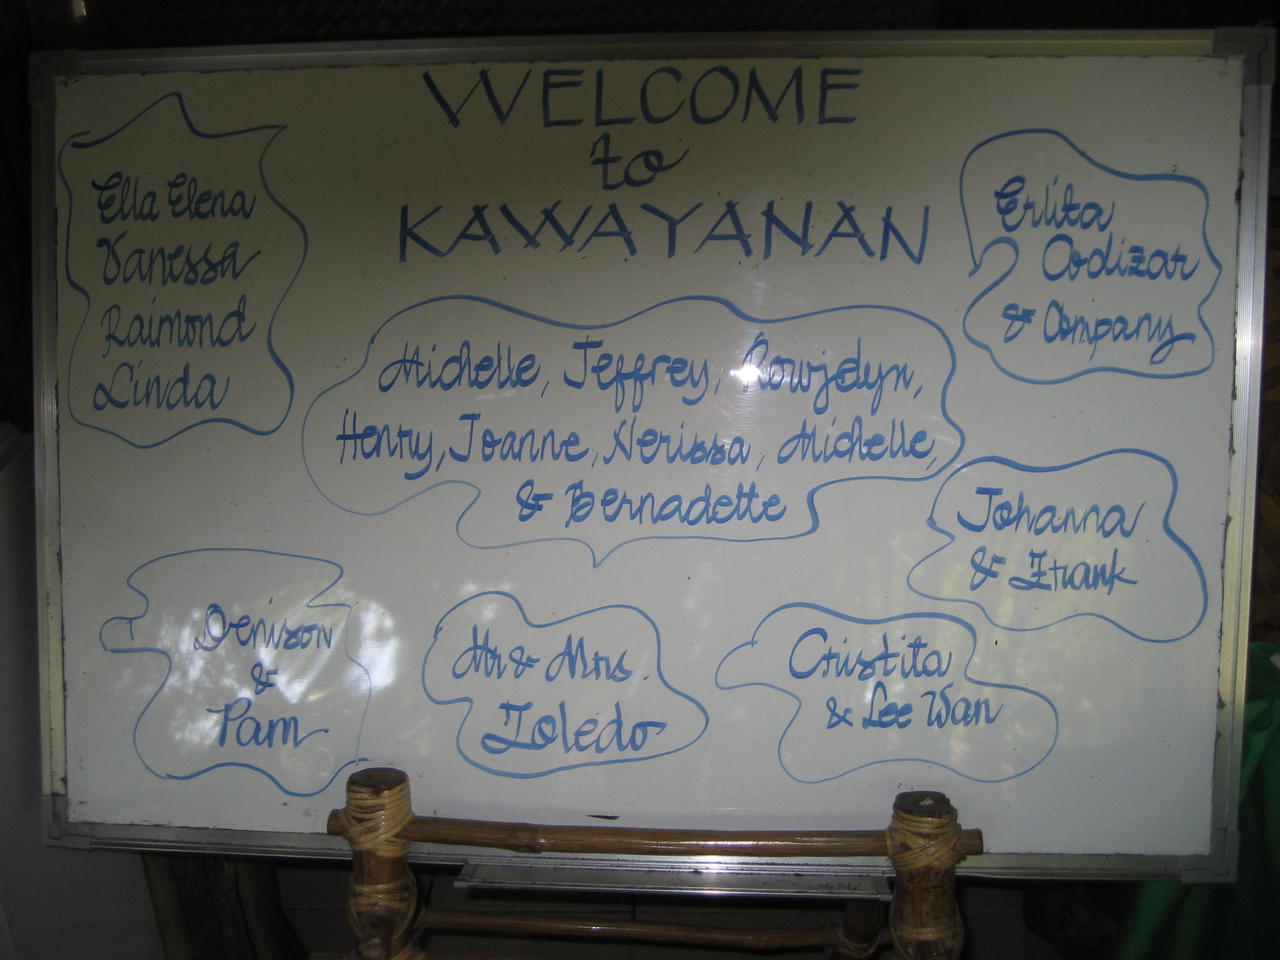 WELCOME
to
KAWAYANAN
Ella Elena
Vanessa
Raimond
Linda
Erlita
Codizar
& Company
Michelle, Jeffrey, Rowjelyn,
Henry, Joanne, Nerissa, Michelle,
& Bernadette
Johanna
& Frank
Denison
&
Pam
Mr & Mrs
Toledo
Cristita
& Lee Wan